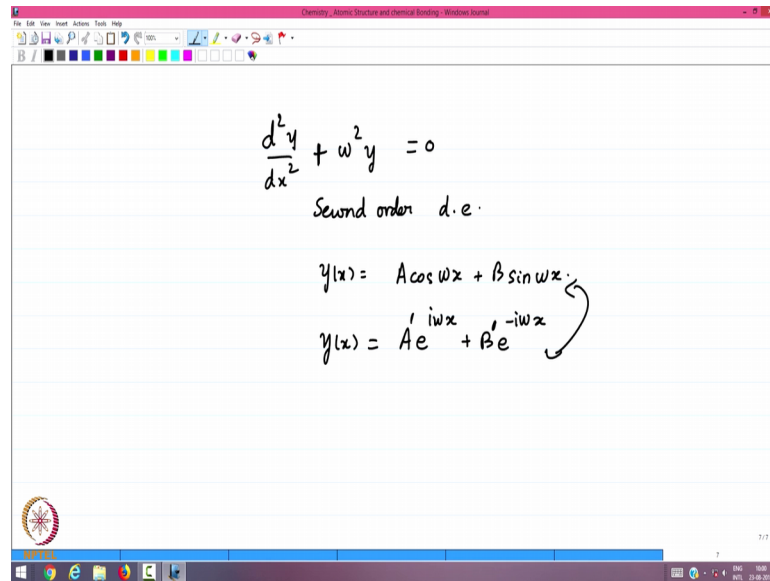 Chemistry _ Atomic Structure and chemical Bonding - Windows Journal
File Edit View Insert Actions Tools Help
100%
B I
d²y/dx² + ω²y = 0
Second order d.e.
y(x) = A cos ωx + B sin ωx.
y(x) = A′e^{iωx} + B′e^{-iωx}
7/7
NPTEL
7
ENG 10:00
INTL